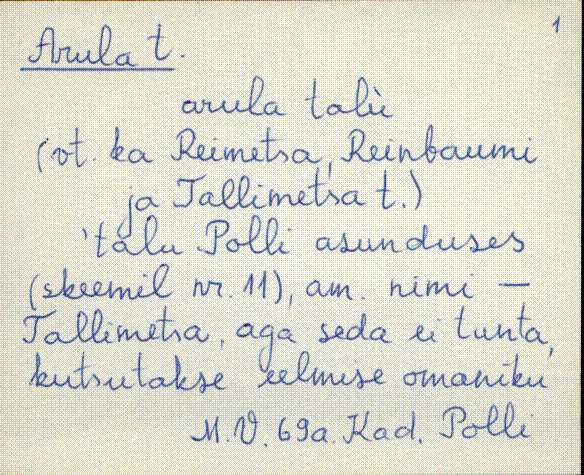 1
Arula t.
arula talù
(vt. ka Reimetsa, Reinbaumi
ja Tallimetsa t.)
'talu Polli asunduses
(skeemil nr. 11), am. nimi —
Tallimetsa, aga seda ei tunta,
kutsutakse eelmise omaniku
M.V. 69a. Kad. Polli